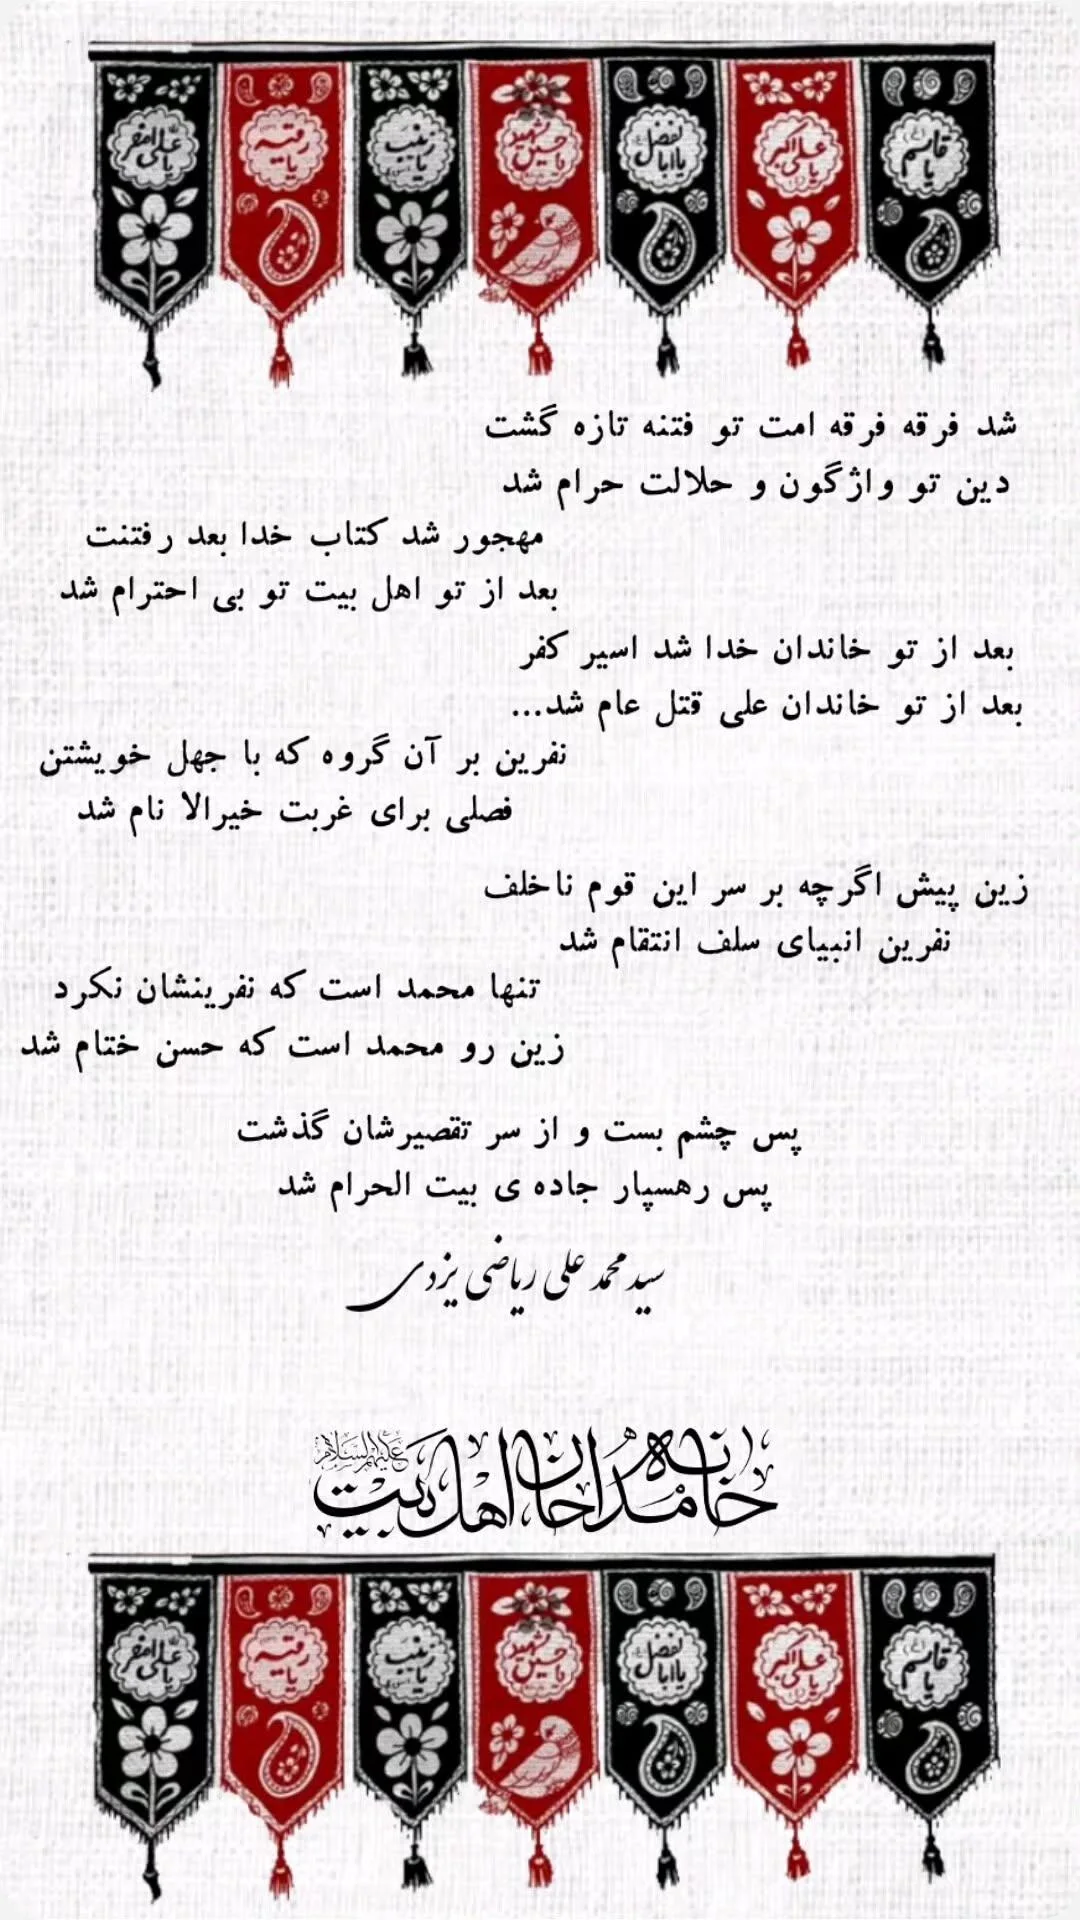 یا قاسم
یا علی اکبر
یا اباالفضل
یا حسین شهید
یا زینب
یا رقیه
یا علی اصغر
شد فرقه فرقه امت تو فتنه تازه گشت
دین تو واژگون و حلالت حرام شد
مهجور شد کتاب خدا بعد رفتنت
بعد از تو اهل بیت تو بی احترام شد
بعد از تو خاندان خدا شد اسیر کفر
بعد از تو خاندان علی قتل عام شد...
نفرین بر آن گروه که با جهل خویشتن
فصلی برای غربت خیرالا نام شد
زین پیش اگرچه بر سر این قوم ناخلف
نفرین انبیای سلف انتقام شد
تنها محمد است که نفرینشان نکرد
زین رو محمد است که حسن ختام شد
پس چشم بست و از سر تقصیرشان گذشت
پس رهسپار جاده ی بیت الحرام شد
سید محمد علی ریاضی یزدی
خانه مداحان اهل بیت علیهم السلام
یا قاسم
یا علی اکبر
یا اباالفضل
یا حسین شهید
یا زینب
یا رقیه
یا علی اصغر